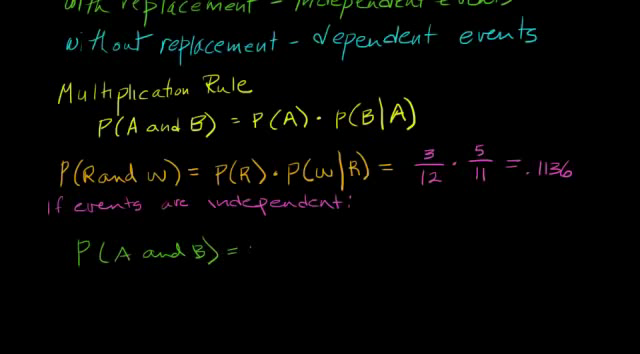 with replacement - independent events
without replacement - dependent events
Multiplication Rule
P(A and B) = P(A) · P(B|A)
P(R and W) = P(R) · P(W|R) = 3/12 · 5/11 = .1136
If events are independent:
P(A and B) =